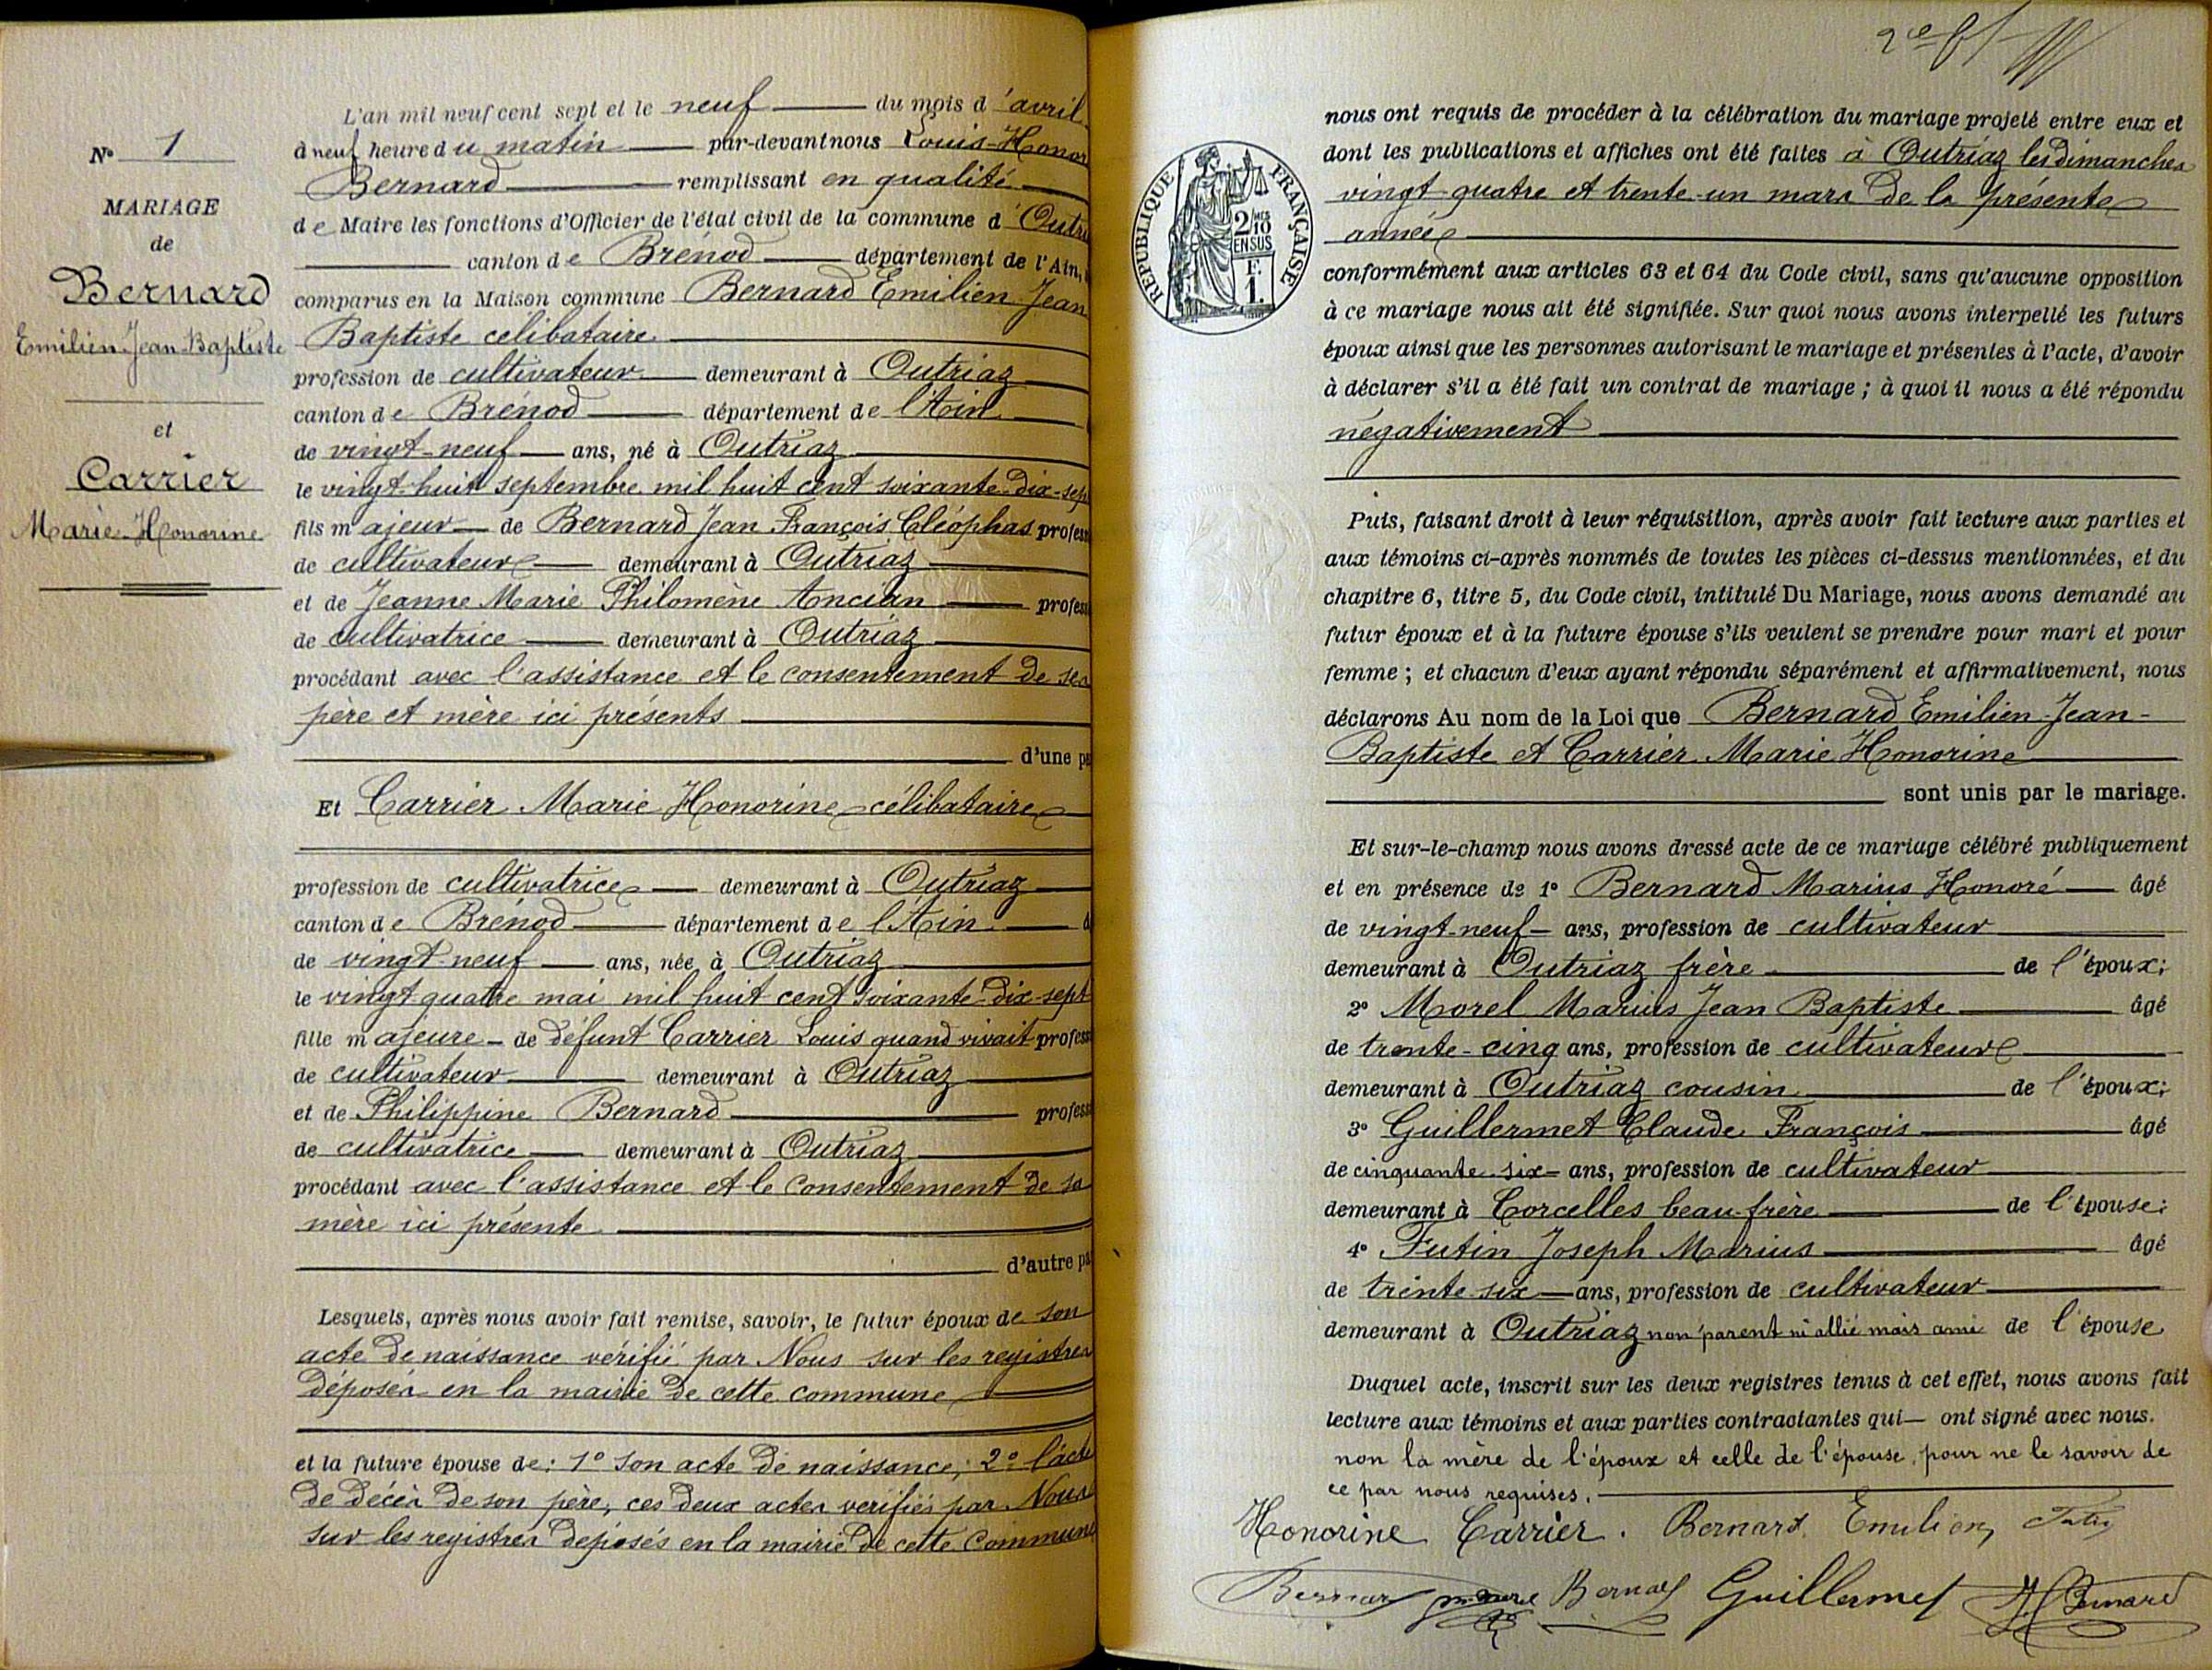 N° 1
MARIAGE
de
Bernard
Emilien Jean-Baptiste
et
Carrier
Marie-Honorine
L'an mil neuf cent sept et le neuf du mois d'avril
à neuf heure du matin par-devant nous Louis-Honor
Bernard remplissant en qualité
de Maire les fonctions d'Officier de l'état civil de la commune d'Outri
canton de Brénod département de l'Ain,
comparus en la Maison commune Bernard Emilien Jean
Baptiste célibataire
profession de cultivateur demeurant à Outriaz
canton de Brénod département de l'Ain
de vingt-neuf ans, né à Outriaz
le vingt-huit septembre mil huit cent soixante-dix-sep
fils majeur de Bernard Jean François Cléophas profess
de cultivateur demeurant à Outriaz
et de Jeanne Marie Philomène Ancian profess
de cultivatrice demeurant à Outriaz
procédant avec l'assistance et le consentement de ses
père et mère ici présents
d'une pa
Et Carrier Marie Honorine célibataire
profession de cultivatrice demeurant à Outriaz
canton de Brénod département de l'Ain
de vingt-neuf ans, née à Outriaz
le vingt quatre mai mil huit cent soixante-dix-sept
fille majeure de défunt Carrier Louis quand vivait profess
de cultivateur demeurant à Outriaz
et de Philippine Bernard profess
de cultivatrice demeurant à Outriaz
procédant avec l'assistance et le consentement de sa
mère ici présente
d'autre pa
Lesquels, après nous avoir fait remise, savoir, le futur époux de son
acte de naissance vérifié par Nous sur les registres
déposés en la mairie de cette commune
et la future épouse de: 1° son acte de naissance; 2° l'acte
de décès de son père, ces deux actes vérifiés par Nous
sur les registres déposés en la mairie de cette commune
RÉPUBLIQUE FRANÇAISE
2/10
EN SUS
F.
1.
nous ont requis de procéder à la célébration du mariage projeté entre eux et
dont les publications et affiches ont été faites à Outriaz les dimanches
vingt quatre et trente-un mars de la présente
année
conformément aux articles 63 et 64 du Code civil, sans qu'aucune opposition
à ce mariage nous ait été signifiée. Sur quoi nous avons interpellé les futurs
époux ainsi que les personnes autorisant le mariage et présentes à l'acte, d'avoir
à déclarer s'il a été fait un contrat de mariage; à quoi il nous a été répondu
négativement
Puis, faisant droit à leur réquisition, après avoir fait lecture aux parties et
aux témoins ci-après nommés de toutes les pièces ci-dessus mentionnées, et du
chapitre 6, titre 5, du Code civil, intitulé Du Mariage, nous avons demandé au
futur époux et à la future épouse s'ils veulent se prendre pour mari et pour
femme; et chacun d'eux ayant répondu séparément et affirmativement, nous
déclarons Au nom de la Loi que Bernard Emilien Jean-
Baptiste et Carrier Marie Honorine
sont unis par le mariage.
Et sur-le-champ nous avons dressé acte de ce mariage célébré publiquement
et en présence de 1° Bernard Marius Honoré âgé
de vingt-neuf ans, profession de cultivateur
demeurant à Outriaz frère de l'époux;
2° Morel Marius Jean Baptiste âgé
de trente-cinq ans, profession de cultivateur
demeurant à Outriaz cousin de l'époux;
3° Guillermet Claude François âgé
de cinquante-six ans, profession de cultivateur
demeurant à Corcelles beau-frère de l'épouse;
4° Futin Joseph Marius âgé
de trente-six ans, profession de cultivateur
demeurant à Outriaz non parent ni allié mais ami de l'épouse
Duquel acte, inscrit sur les deux registres tenus à cet effet, nous avons fait
lecture aux témoins et aux parties contractantes qui ont signé avec nous.
non la mère de l'époux et celle de l'épouse, pour ne le savoir de
ce par nous requises.
Honorine Carrier. Bernard Emilien Futin
Bernard Morel Bernard Guillermet H Bernard